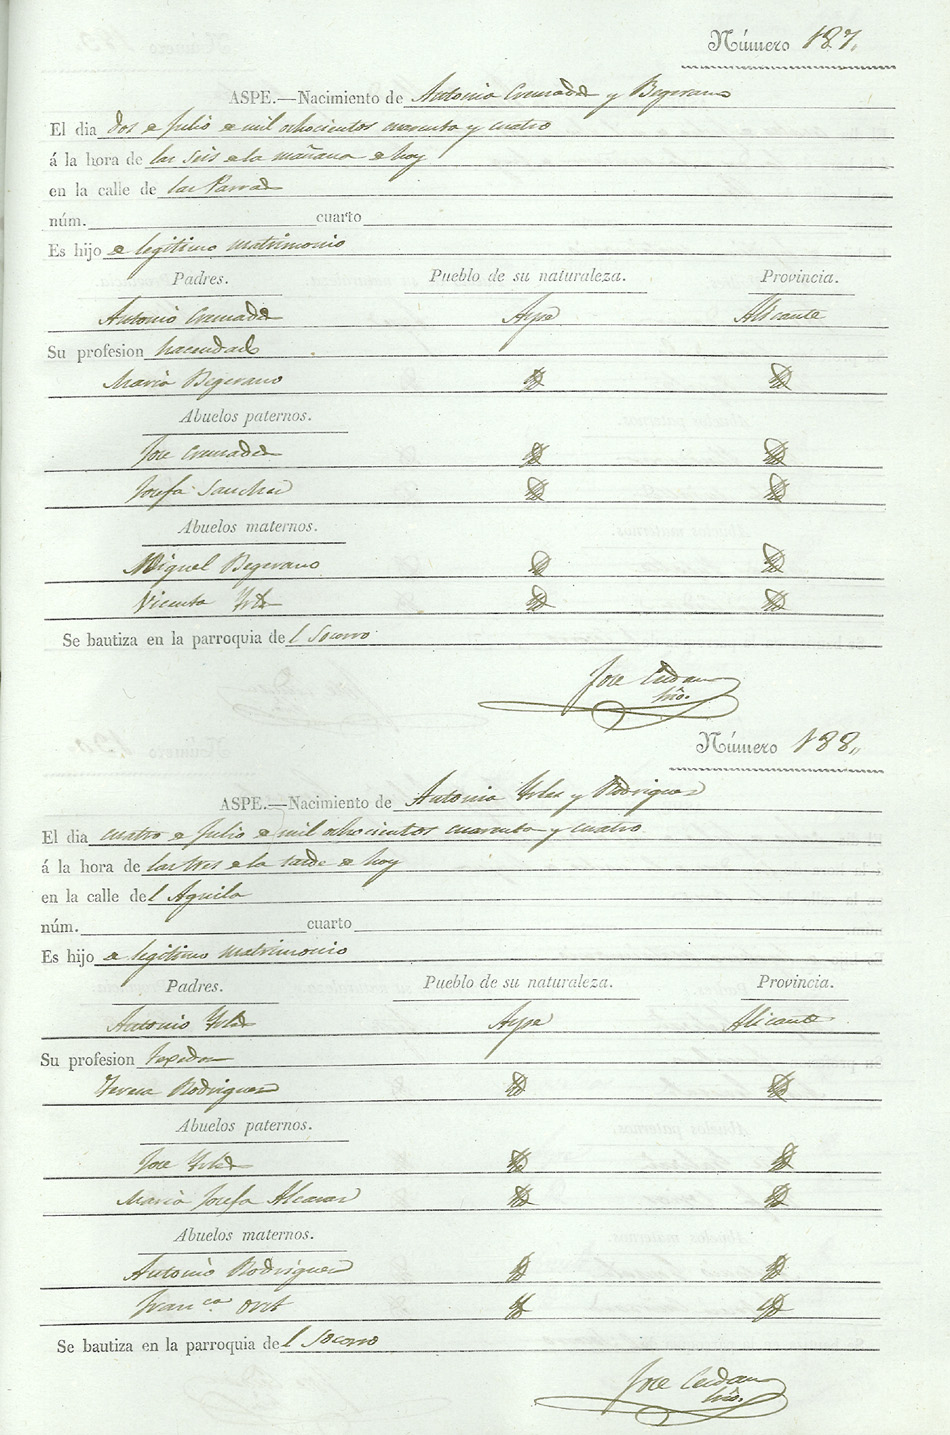 Número 187.
ASPE.—Nacimiento de Antonio Cremades y Begerano
El dia dos de Julio de mil ochocientos cuarenta y cuatro
á la hora de las seis de la mañana de hoy
en la calle de las Parras
núm. cuarto
Es hijo de legitimo matrimonio
Padres. Pueblo de su naturaleza. Provincia.
Antonio Cremades Aspe Alicante
Su profesion hacendado
Maria Begerano
Abuelos paternos.
Jose Cremades
Josefa Sanchez
Abuelos maternos.
Miguel Begerano
Vicenta
Se bautiza en la parroquia del Socorro
Jose Cerdan
Número 188.
ASPE.—Nacimiento de Antonia y Rodriguez
El dia cuatro de Julio de mil ochocientos cuarenta y cuatro
á la hora de las tres de la tarde de hoy
en la calle del Aguila
núm. cuarto
Es hijo de legitimo matrimonio
Padres. Pueblo de su naturaleza. Provincia.
Antonio Aspe Alicante
Su profesion texedor
Teresa Rodriguez
Abuelos paternos.
Jose
Maria Josefa Alcaraz
Abuelos maternos.
Antonio Rodriguez
Fran.ca
Se bautiza en la parroquia del Socorro
Jose Cerdan